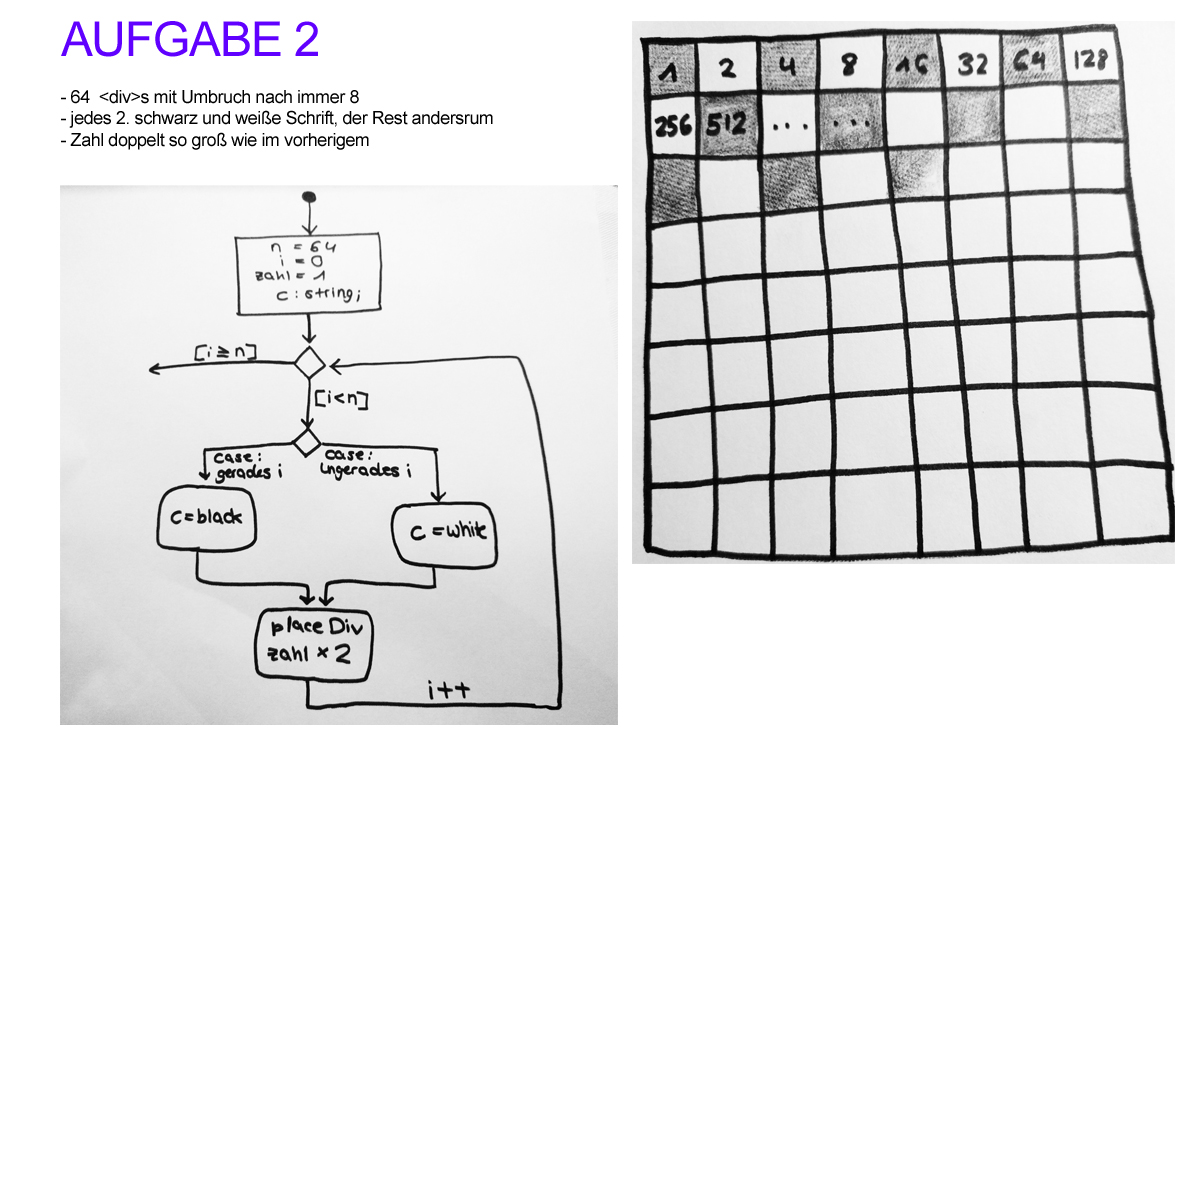 AUFGABE 2
- 64 <div>s mit Umbruch nach immer 8
- jedes 2. schwarz und weiße Schrift, der Rest andersrum
- Zahl doppelt so groß wie im vorherigem
n = 64
i = 0
zahl = 1
c : string;
[i ≥ n]
[i<n]
case:
gerades i
case:
ungerades i
c=black
c=white
place Div
zahl × 2
i++
1 2 4 8 16 32 64 128
256 512 ... ...